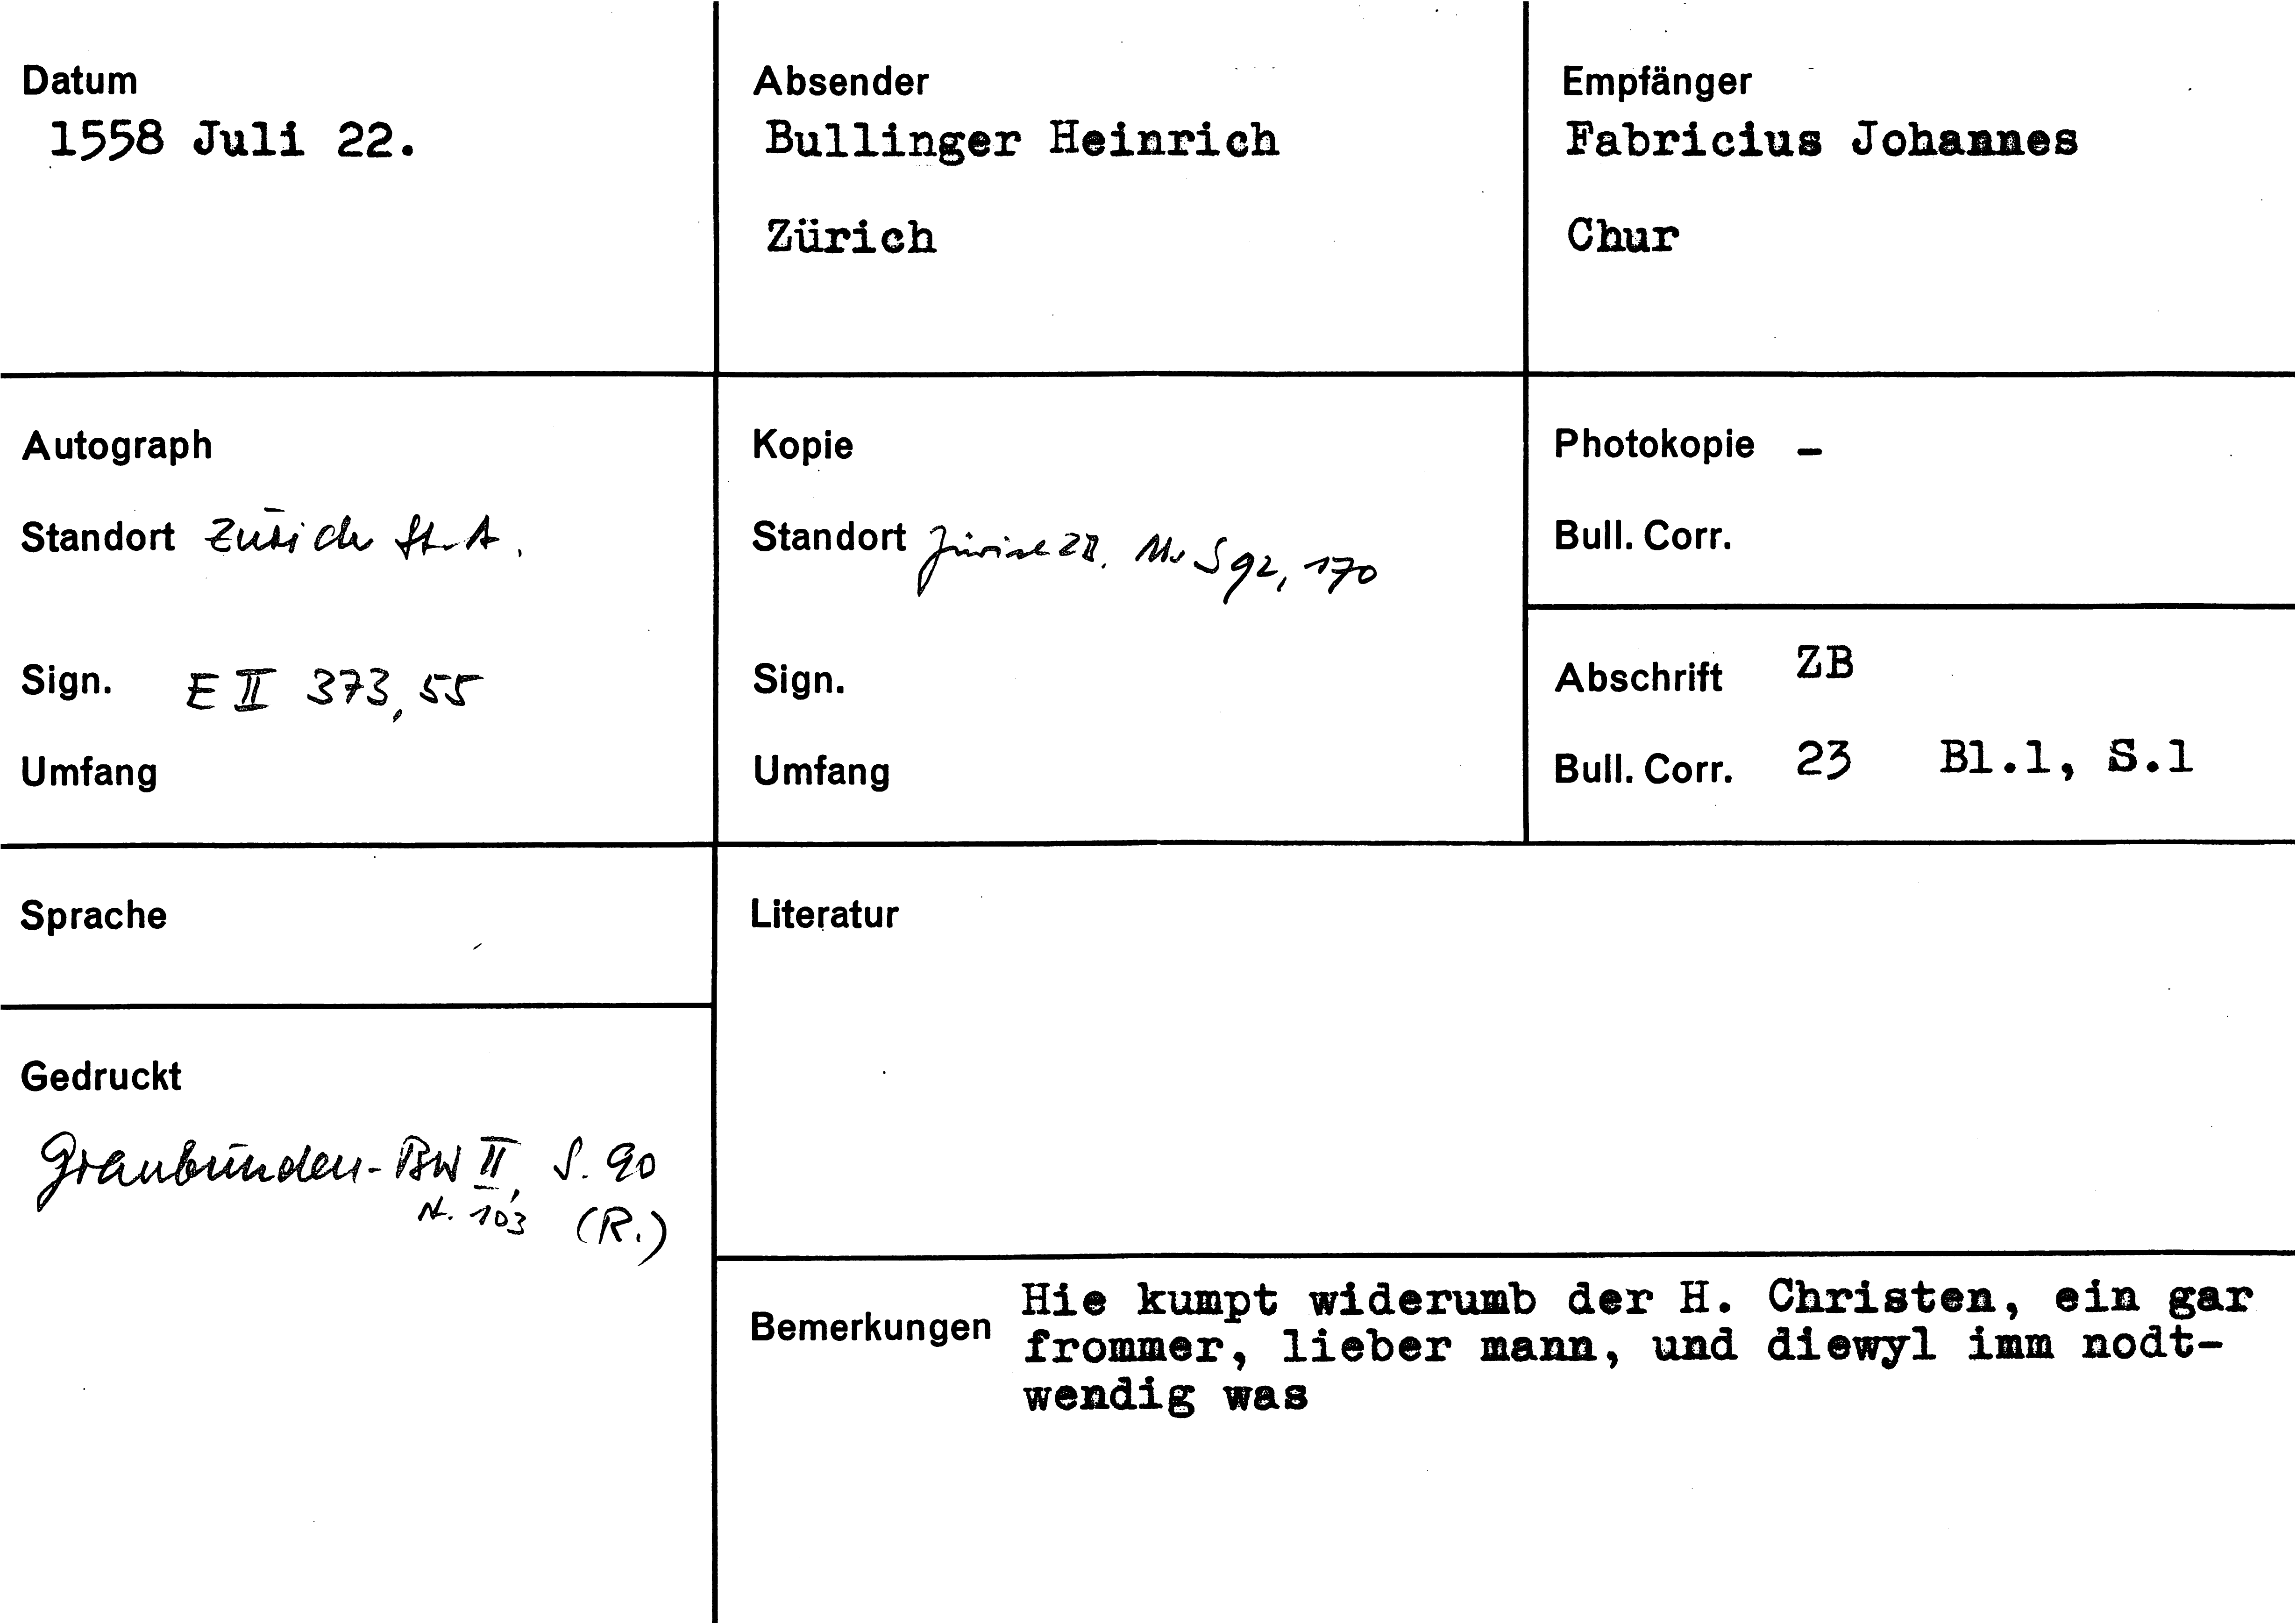 Datum
1558 Juli 22.
Absender
Bullinger Heinrich
Zürich
Empfänger
Fabricius Johannes
Chur
Autograph
Standort Zürich St.A.
Sign. E II 373, 55
Umfang
Kopie
Standort Zürich ZB. Ms S 92, 170
Sign.
Umfang
Photokopie -
Bull. Corr.
Abschrift ZB
Bull. Corr. 23 Bl.1, S.1
Sprache
Literatur
Gedruckt
Graubünden-BW II, S. 90
N. 103 (R.)
Bemerkungen
Hie kumpt widerumb der H. Christen, ein gar
frommer, lieber mann, und diewyl imm nodt-
wendig was